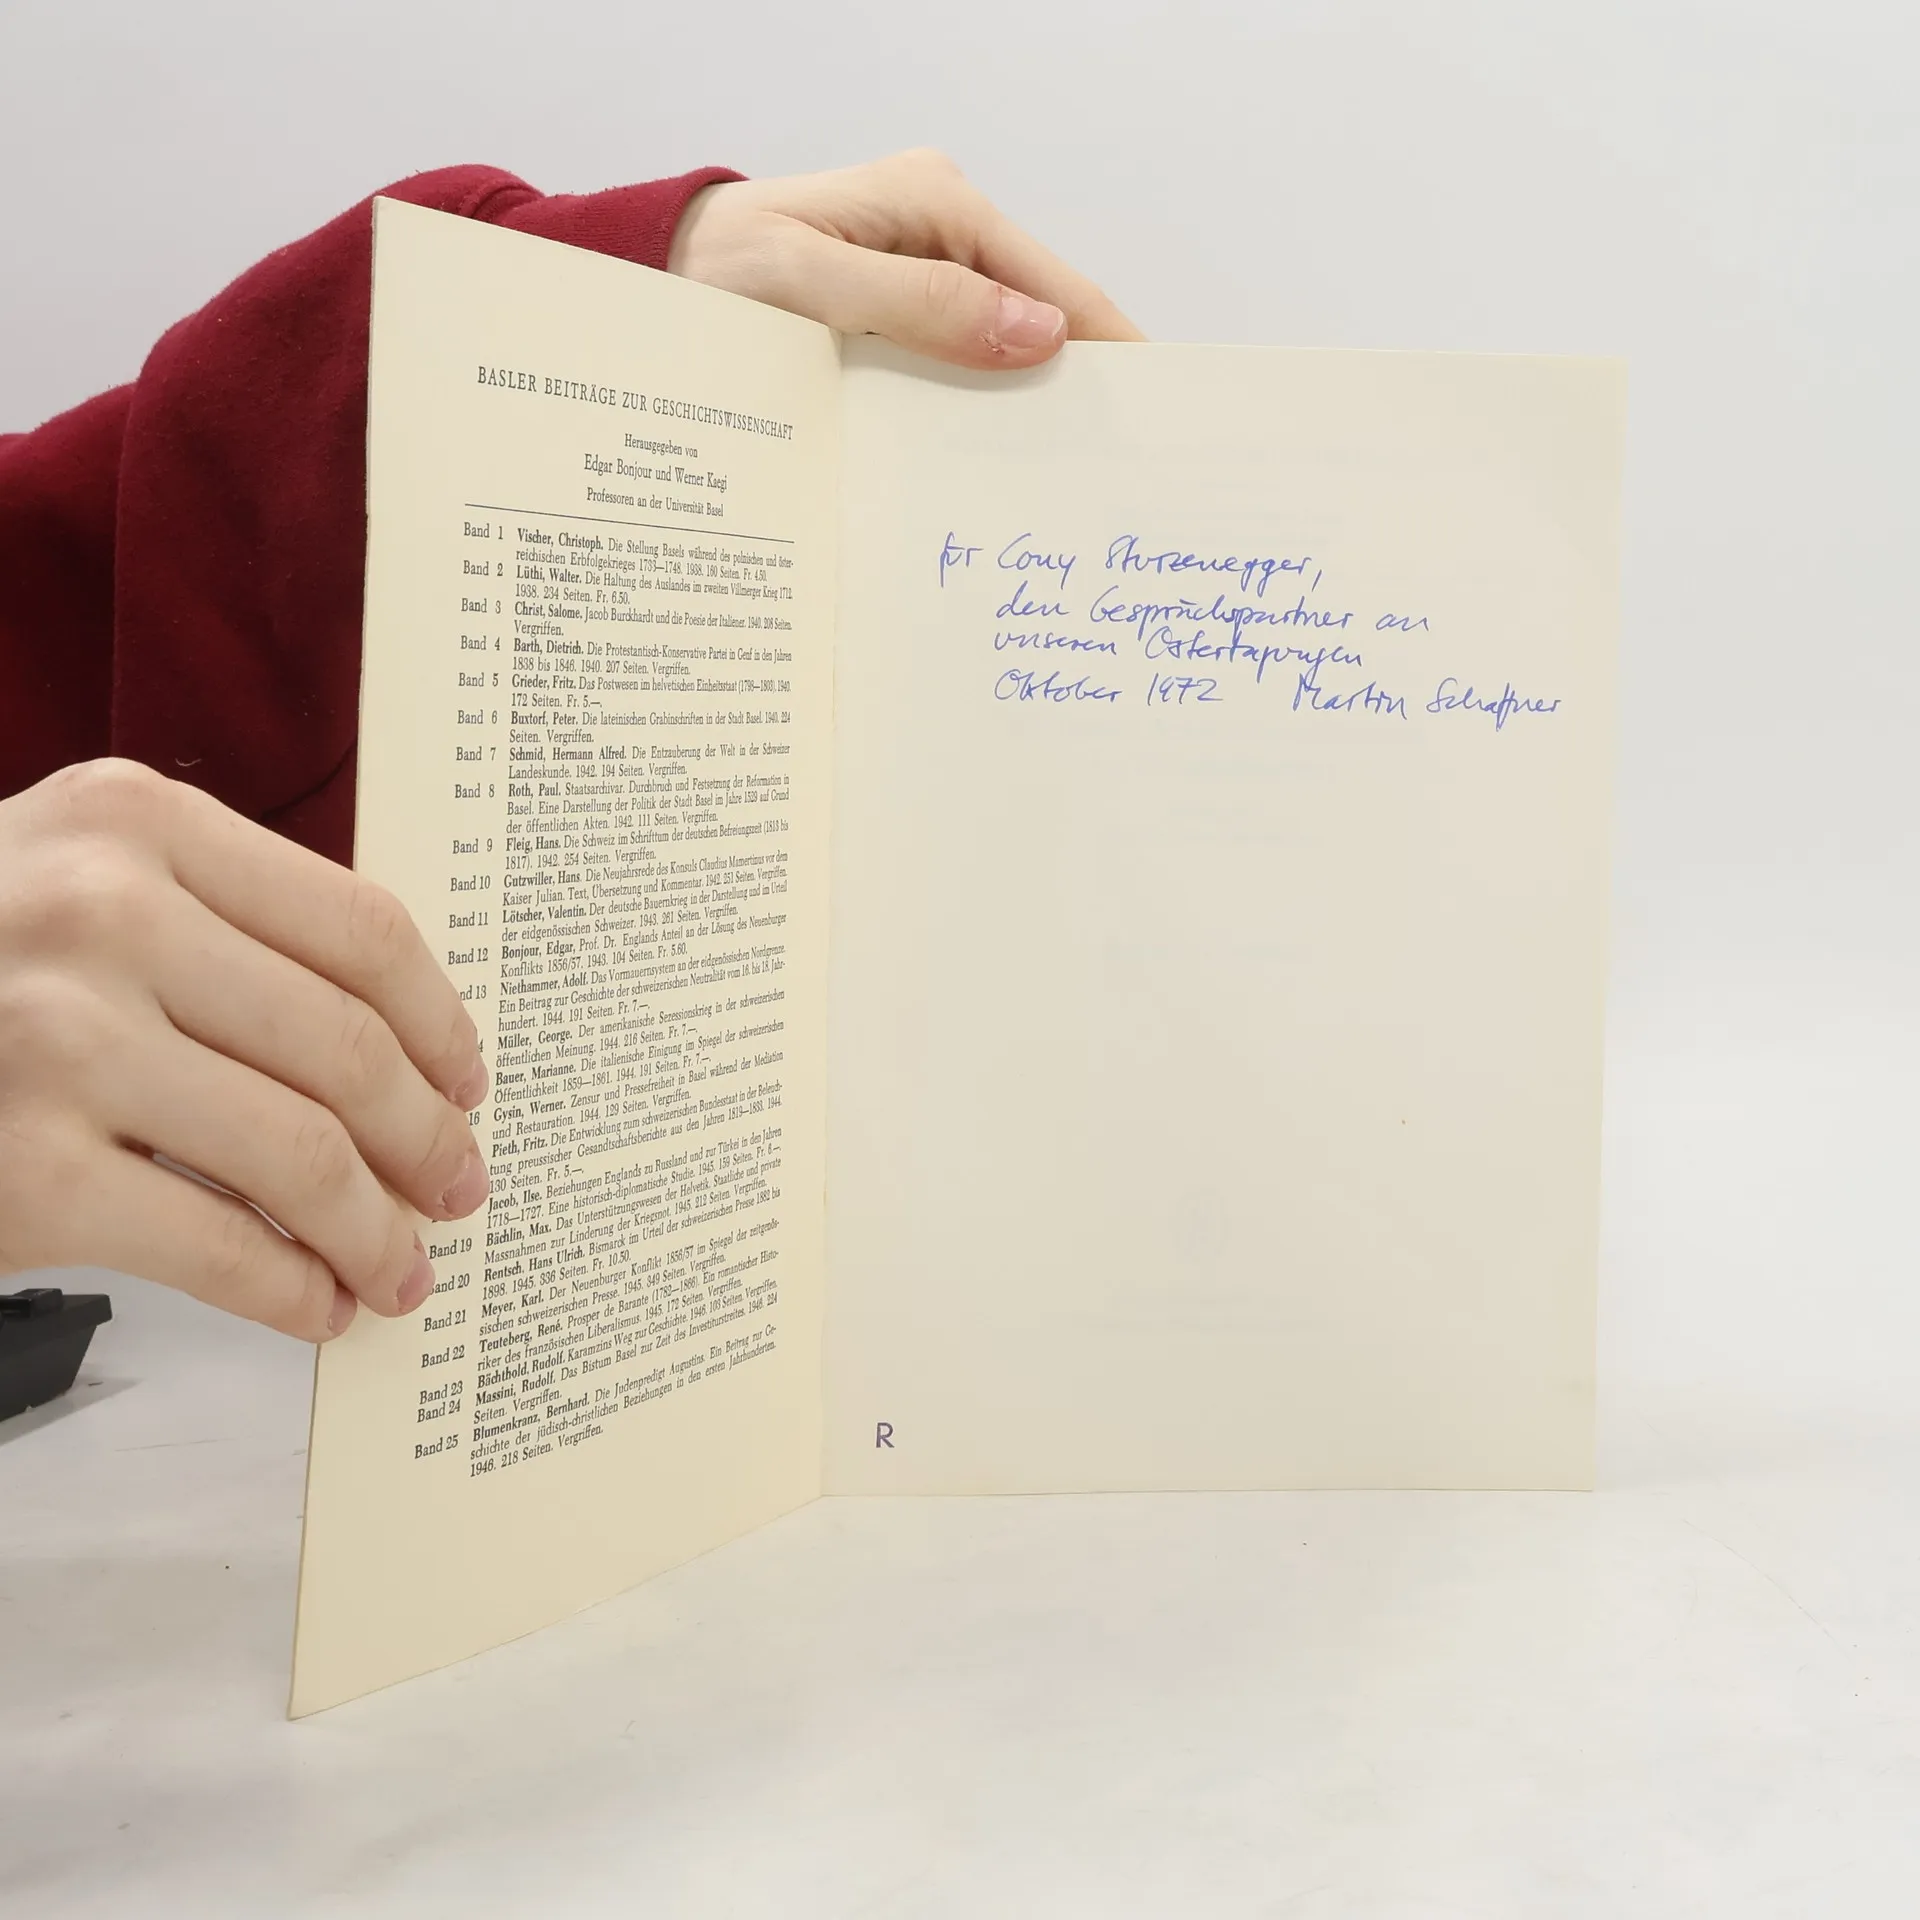 BASLER BEITRÄGE ZUR GESCHICHTSWISSENSCHAFT
Herausgegeben von
Edgar Bonjour und Werner Kaegi
Professoren an der Universität Basel
Band 1 Vischer, Christoph. Die Stellung Basels während des polnischen und öster-
reichischen Erbfolgekrieges 1733—1748. 1938. 160 Seiten. Fr. 4.50.
Band 2 Lüthi, Walter. Die Haltung des Auslandes im zweiten Villmerger Krieg 1712.
1938. 234 Seiten. Fr. 6.50.
Band 3 Christ, Salome. Jacob Burckhardt und die Poesie der Italiener. 1940. 208 Seiten.
Vergriffen.
Band 4 Barth, Dietrich. Die Protestantisch-Konservative Partei in Genf in den Jahren
1838 bis 1846. 1940. 207 Seiten. Vergriffen.
Band 5 Grieder, Fritz. Das Postwesen im helvetischen Einheitsstaat (1798—1803). 1940.
172 Seiten. Fr. 5.—.
Band 6 Buxtorf, Peter. Die lateinischen Grabinschriften in der Stadt Basel. 1940. 224
Seiten. Vergriffen.
Band 7 Schmid, Hermann Alfred. Die Entzauberung der Welt in der Schweizer
Landeskunde. 1942. 194 Seiten. Vergriffen.
Band 8 Roth, Paul. Staatsarchivar. Durchbruch und Festsetzung der Reformation in
Basel. Eine Darstellung der Politik der Stadt Basel im Jahre 1529 auf Grund
der öffentlichen Akten. 1942. 111 Seiten. Vergriffen.
Band 9 Fleig, Hans. Die Schweiz im Schrifttum der deutschen Befreiungszeit (1813 bis
1817). 1942. 254 Seiten. Vergriffen.
Band 10 Gutzwiller, Hans. Die Neujahrsrede des Konsuls Claudius Mamertinus vor dem
Kaiser Julian. Text, Übersetzung und Kommentar. 1942. 251 Seiten. Vergriffen.
Band 11 Lötscher, Valentin. Der deutsche Bauernkrieg in der Darstellung und im Urteil
der eidgenössischen Schweizer. 1943. 261 Seiten. Vergriffen.
Band 12 Bonjour, Edgar, Prof. Dr. Englands Anteil an der Lösung des Neuenburger
Konflikts 1856/57. 1943. 104 Seiten. Fr. 5.60.
nd 13 Niethammer, Adolf. Das Vormauernsystem an der eidgenössischen Nordgrenze.
Ein Beitrag zur Geschichte der schweizerischen Neutralität vom 16. bis 18. Jahr-
hundert. 1944. 191 Seiten. Fr. 7.—.
4 Müller, George. Der amerikanische Sezessionskrieg in der schweizerischen
öffentlichen Meinung. 1944. 216 Seiten. Fr. 7.—.
Bauer, Marianne. Die italienische Einigung im Spiegel der schweizerischen
Öffentlichkeit 1859—1861. 1944. 191 Seiten. Fr. 7.—.
16 Gysin, Werner. Zensur und Pressefreiheit in Basel während der Mediation
und Restauration. 1944. 129 Seiten. Vergriffen.
Pieth, Fritz. Die Entwicklung zum schweizerischen Bundesstaat in der Beleuch-
tung preussischer Gesandtschaftsberichte aus den Jahren 1819—1833. 1944.
130 Seiten. Fr. 5.—.
Jacob, Ilse. Beziehungen Englands zu Russland und zur Türkei in den Jahren
1718—1727. Eine historisch-diplomatische Studie. 1945. 159 Seiten. Fr. 8.—.
Band 19 Bächlin, Max. Das Unterstützungswesen der Helvetik. Staatliche und private
Massnahmen zur Linderung der Kriegsnot. 1945. 212 Seiten. Vergriffen.
and 20 Rentsch, Hans Ulrich. Bismarck im Urteil der schweizerischen Presse 1862 bis
1898. 1945. 336 Seiten. Fr. 10.50.
Band 21 Meyer, Karl. Der Neuenburger Konflikt 1856/57 im Spiegel der zeitgenös-
sischen schweizerischen Presse. 1945. 349 Seiten. Vergriffen.
Band 22 Teuteberg, René. Prosper de Barante (1782—1866). Ein romantischer Histo-
riker des französischen Liberalismus. 1945. 172 Seiten. Vergriffen.
Band 23 Bächthold, Rudolf. Karamzins Weg zur Geschichte. 1946. 103 Seiten. Vergriffen.
Band 24 Massini, Rudolf. Das Bistum Basel zur Zeit des Investiturstreites. 1946. 224
Seiten. Vergriffen.
Band 25 Blumenkranz, Bernhard. Die Judenpredigt Augustins. Ein Beitrag zur Ge-
schichte der jüdisch-christlichen Beziehungen in den ersten Jahrhunderten.
1946. 218 Seiten. Vergriffen.
für Cony Sturzenegger,
den Gesprächspartner an
unseren Ostertagungen
Oktober 1972 Martin Schaffner
R